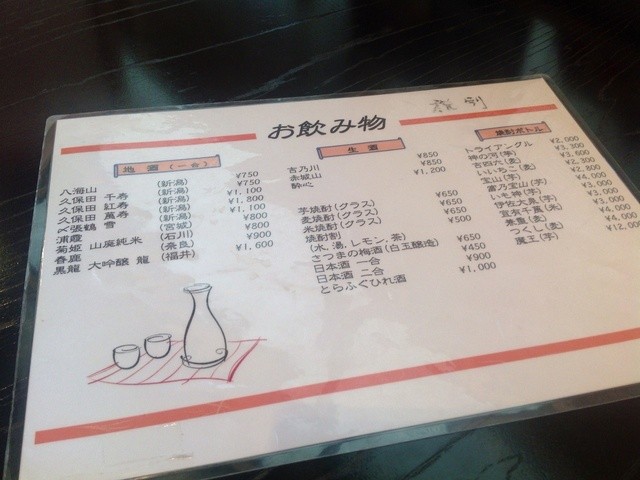 お飲み物
地酒(一合)
八海山 (新潟) ¥750
久保田 千寿 (新潟) ¥750
久保田 紅寿 (新潟) ¥1,100
久保田 萬寿 (新潟) ¥1,800
〆張鶴 雪 (新潟) ¥1,100
浦霞 (宮城) ¥800
菊姫 山廃純米 (石川) ¥800
春鹿 (奈良) ¥900
黒龍 大吟醸 龍 (福井) ¥1,600
生酒
吉乃川 ¥850
赤城山 ¥850
酔心 ¥1,200
芋焼酎(グラス) ¥650
麦焼酎(グラス) ¥650
米焼酎(グラス) ¥500
焼酎割
(水、湯、レモン、茶)
さつまの梅酒(白玉醸造) ¥650
日本酒 一合 ¥450
日本酒 二合 ¥900
とらふぐひれ酒 ¥1,000
焼酎ボトル
トライアングル ¥2,000
神の河(麦) ¥3,300
吉四六(麦)
いいちこ(麦)
宝山(芋)
富乃宝山(芋)
いも神(芋)
伊佐大泉(芋)
豆有千萬(米)
兼重(麦)
つくし(麦)
魔王(芋)